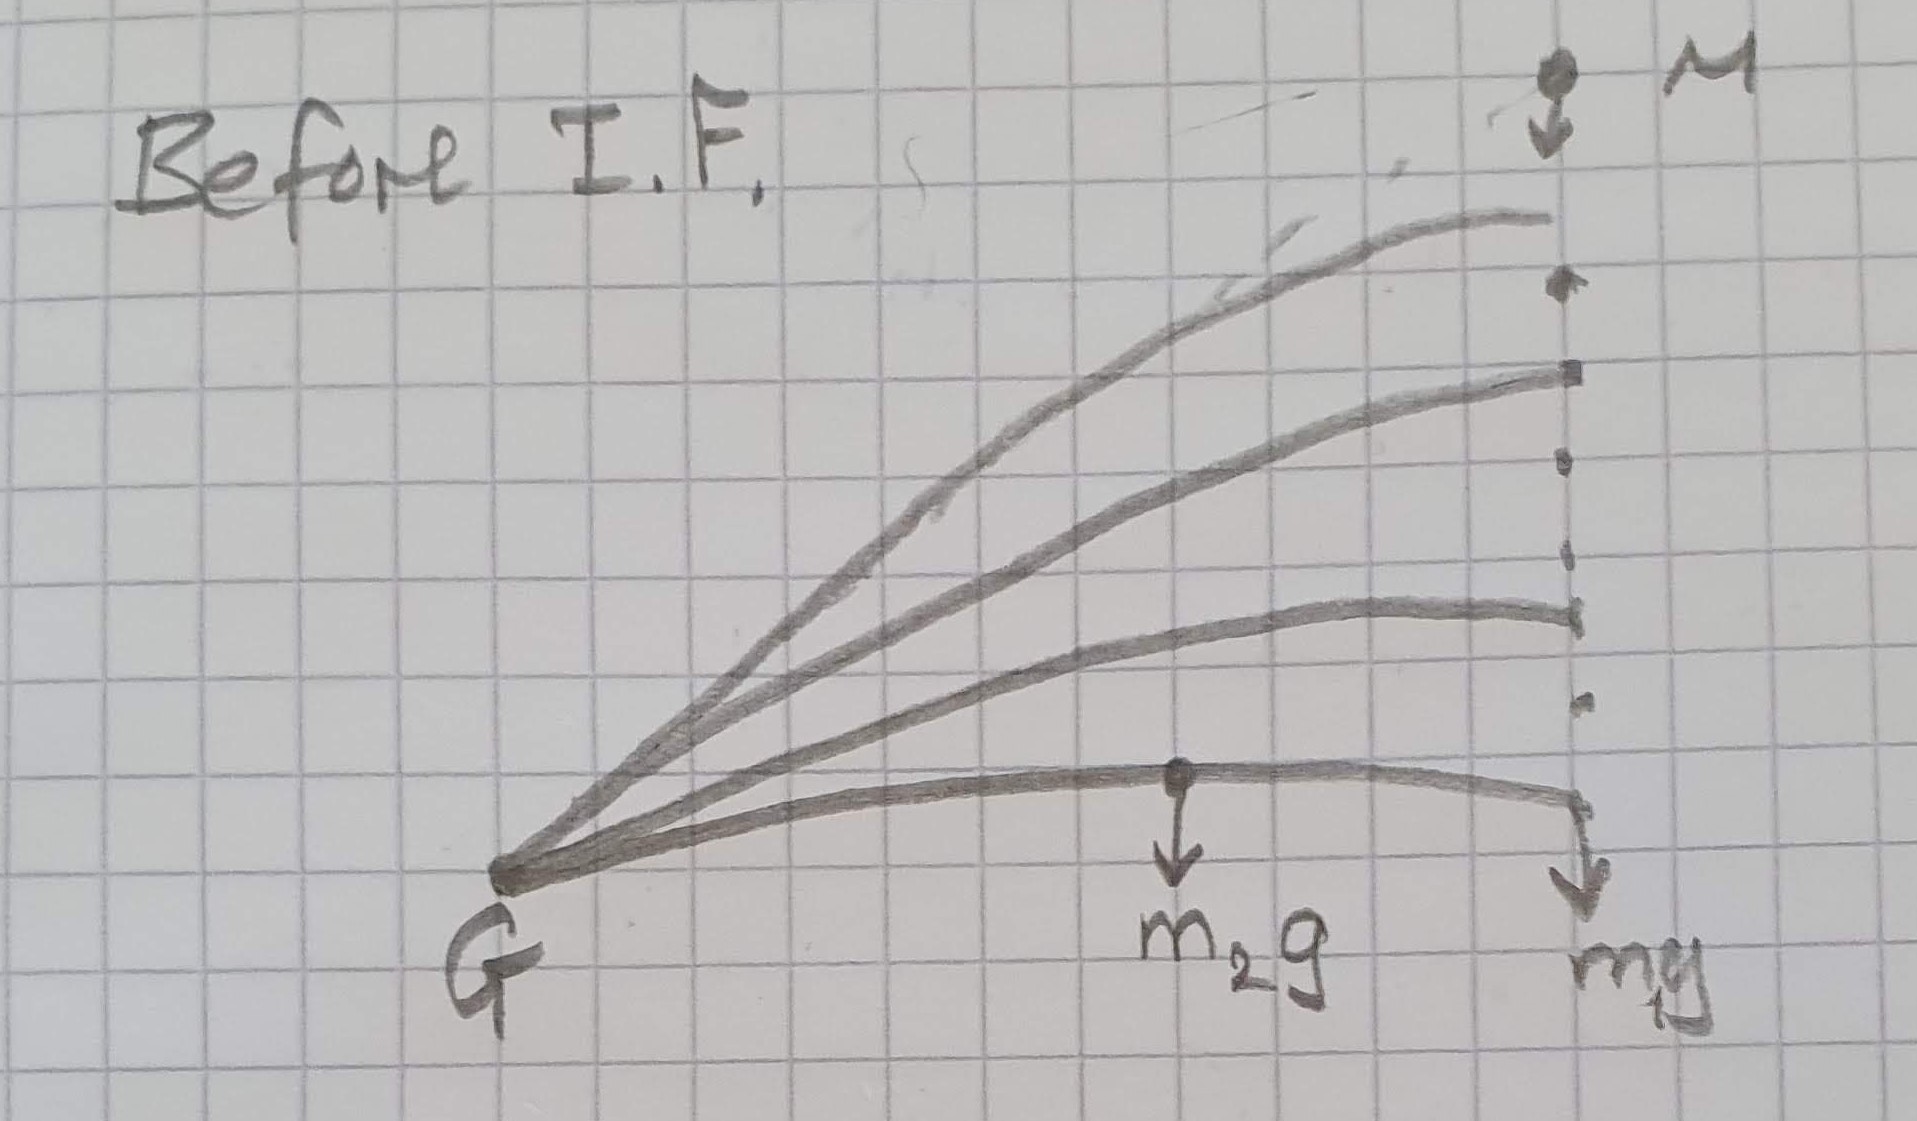 M
Before I.F.
G
m₂g
m₁g